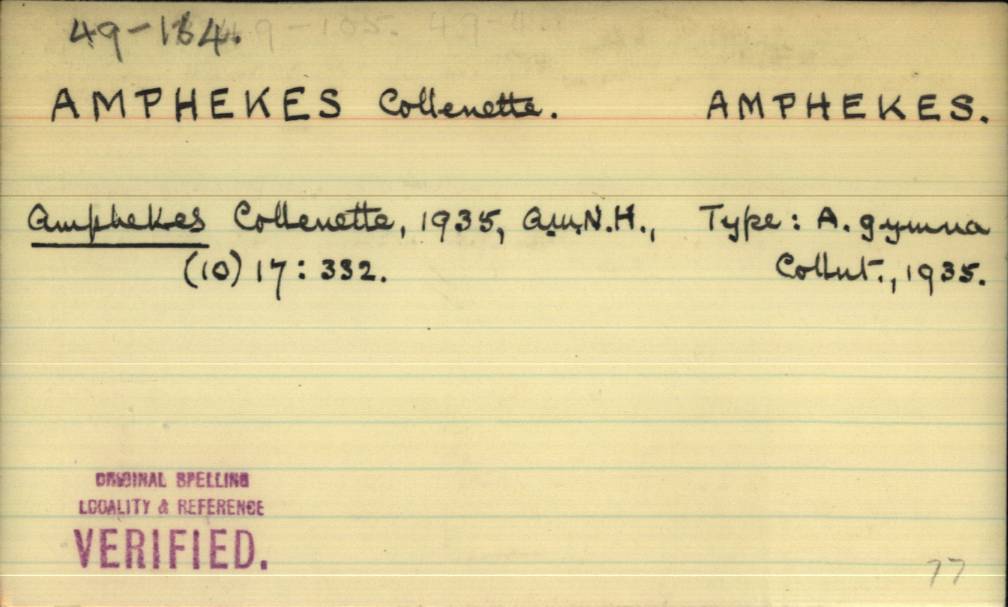 49-164.
AMPHEKES Collenette. AMPHEKES.
Amphekes Collenette, 1935, A.M.N.H., Type: A. gymna
(10) 17: 332. Collnt., 1935.
ORIGINAL SPELLING
LOCALITY & REFERENCE
VERIFIED.
77